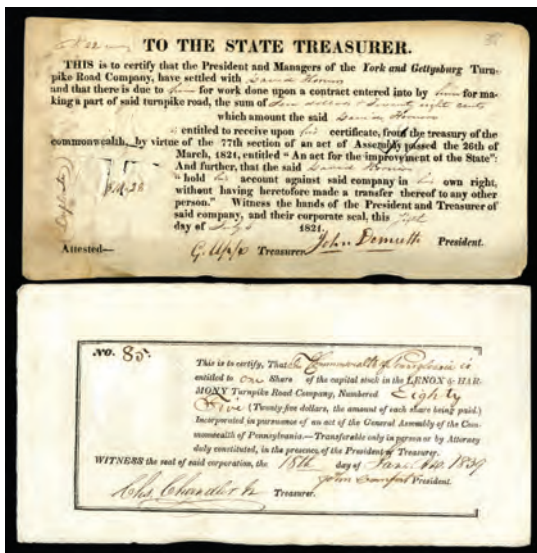 TO THE STATE TREASURER.
THIS is to certify that the President and Managers of the York and Gettysburg Turn-
pike Road Company, have settled with David Horner
and that there is due to him for work done upon a contract entered into by him for ma-
king a part of said turnpike road, the sum of ten dollars & Seventy eight cents
which amount the said
entitled to receive upon his certificate, from the treasury of the
commonwealth, by virtue of the 77th section of an act of Assembly passed the 26th of
March, 1821, entitled "An act for the improvement of the State":
And further, that the said David
"hold his account against said company in his own right,
without having heretofore made a transfer thereof to any other
person." Witness the hands of the President and Treasurer of
said company, and their corporate seal, this
day of July 1821.
Attested— Treasurer. John Demuth President.
Duplicate
NO. 85.
This is to certify, That Commonwealth of Pennsylvania is
entitled to one Share of the capital stock in the LENOX & HAR-
MONY Turnpike Road Company, Numbered Eighty
Five (Twenty-five dollars, the amount of each share being paid.)
Incorporated in pursuance of an act of the General Assembly of the Com-
monwealth of Pennsylvania.—Transferable only in person or by Attorney
duly constituted, in the presence of the President or Treasurer.
WITNESS the seal of said corporation, the 18th day of 1839
John President.
Chs. Chandler Treasurer.